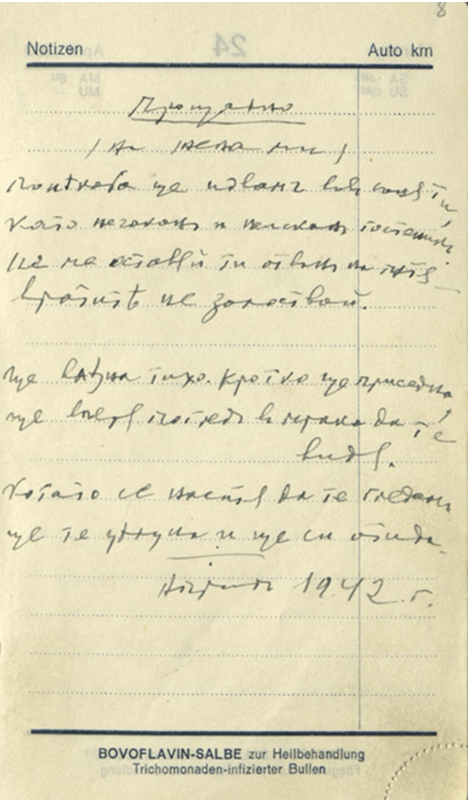 8
Notizen Auto km
Прощално
/на жена ми/
Понякога ще идвам във съня ти
като нечакан и неискан гостенин
Не ме оставяй ти отвън на пътя –
вратите не залоствай.
Ще влезна тихо. Кротко ще приседна
ще вперя поглед в мрака да те
видя.
Когато се наситя да те гледам
ще те целуна и ще си отида.
1942 г.
BOVOFLAVIN-SALBE zur Heilbehandlung
Trichomonaden-infizierter Bullen